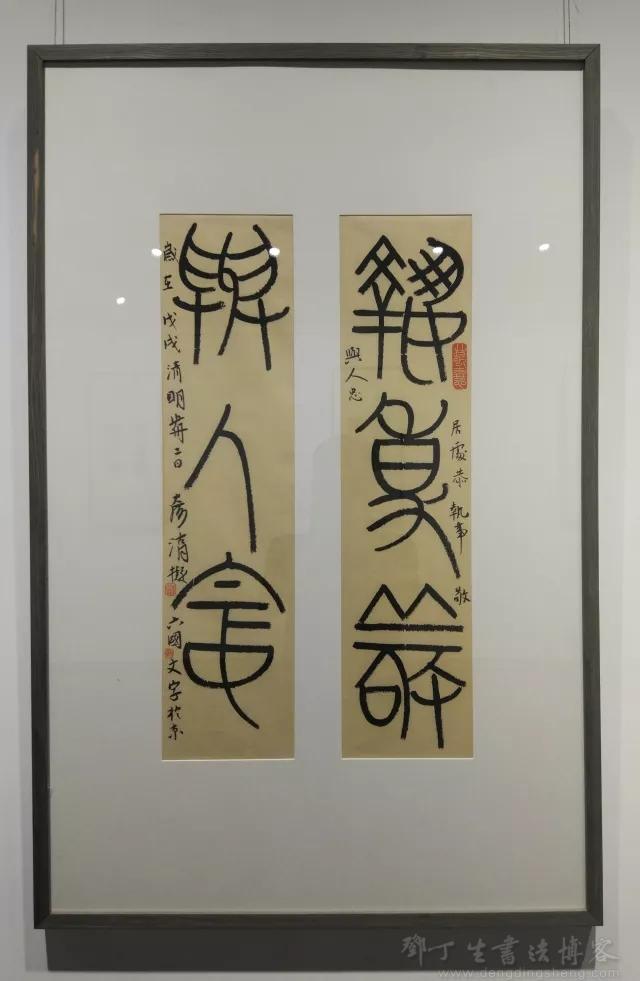 執事敬
居處恭 執事 敬
與人忠
與人忠
歲在戊戌清明前二日 擬六國文字於京
鄧丁生書法博客
www.dengdingsheng.com